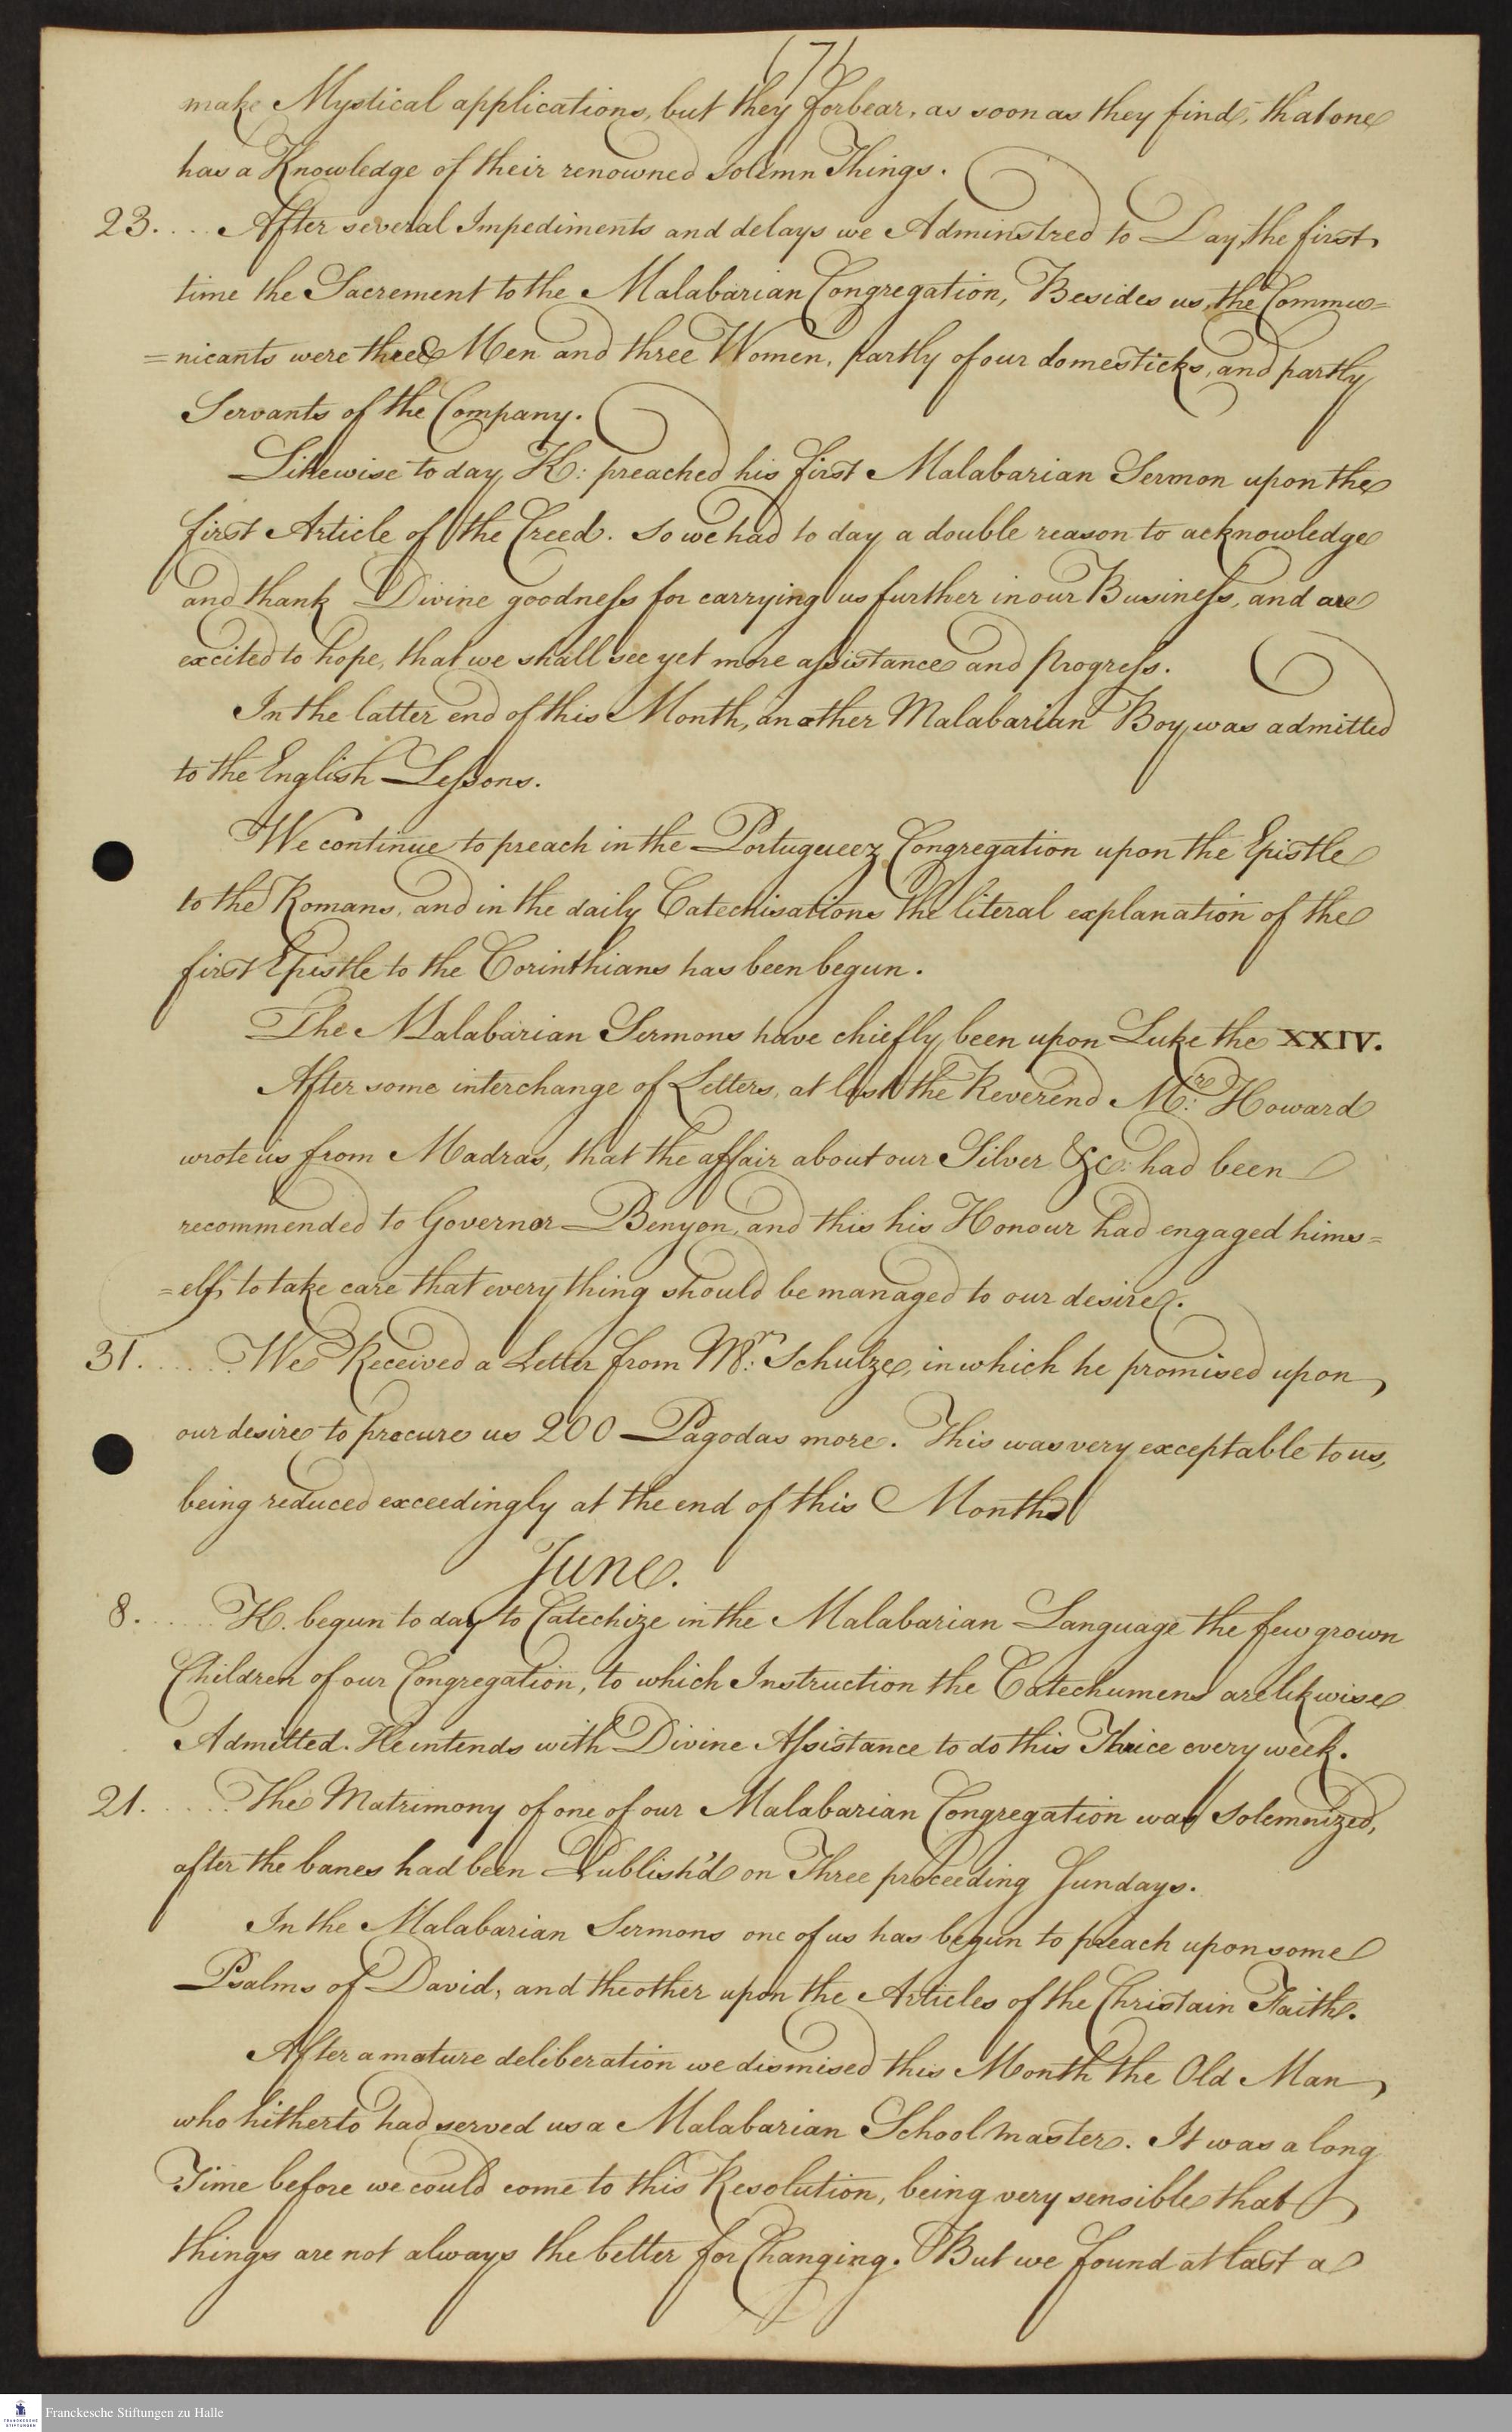 (7)
make Mystical applications, but they forbear, as soon as they find, that one
has a Knowledge of their renowned solemn Things.
23. ... After several Impediments and delays we Adminstred to Day, the first
time the Sacrement to the Malabarian Congregation, Besides us, the Commu=
=nicants were three Men and three Women, partly of our domesticks, and partly
Servants of the Company.
Likewise to day K: preached his first Malabarian Sermon upon the
first Article of the Creed. So we had to day a double reason to acknowledge
and thank Divine goodness for carrying us further in our Business, and are
excited to hope, that we shall see yet more assistance and progress.
In the latter end of this Month, another Malabarian Boy was admitted
to the English Lessons.
We continue to preach in the Portugueez Congregation upon the Epistle
to the Romans, and in the daily Catechisations the literal explanation of the
first Epistle to the Corinthians has been begun.
The Malabarian Sermons have chiefly been upon Luke the XXIV.
After some interchange of Letters, at last the Reverend Mr: Howard
wrote us from Madras, that the affair about our Silver &c: had been
recommended to Governor Benyon, and this his Honour had engaged hims=
=elf, to take care that every thing should be managed to our desire.
31. ..... We Received a Letter from Mr: Schulze, in which he promised upon
our desire to procure us 200 Pagodas more. This was very exceptable to us,
being reduced exceedingly at the end of this Month
June.
8. .... K. begun to day to Catechize in the Malabarian Language the few grown
Children of our Congregation, to which Instruction the Catechumens are likwise
Admitted. He intends with Divine Assistance to do this Thrice every week.
21. .... The Matrimony of one of our Malabarian Congregation was Solemnized,
after the banes had been Publish'd on Three proceeding Sundays.
In the Malabarian Sermons one of us has begun to preach upon some
Psalms of David, and the other upon the Articles of the Christain Faith.
After a mature deliberation we dismised this Month the Old Man
who hitherto had served us a Malabarian School master. It was a long
Time before we could come to this Resolution, being very sensible that
things are not always the better for Changing. But we found at last a
Franckesche Stiftungen zu Halle